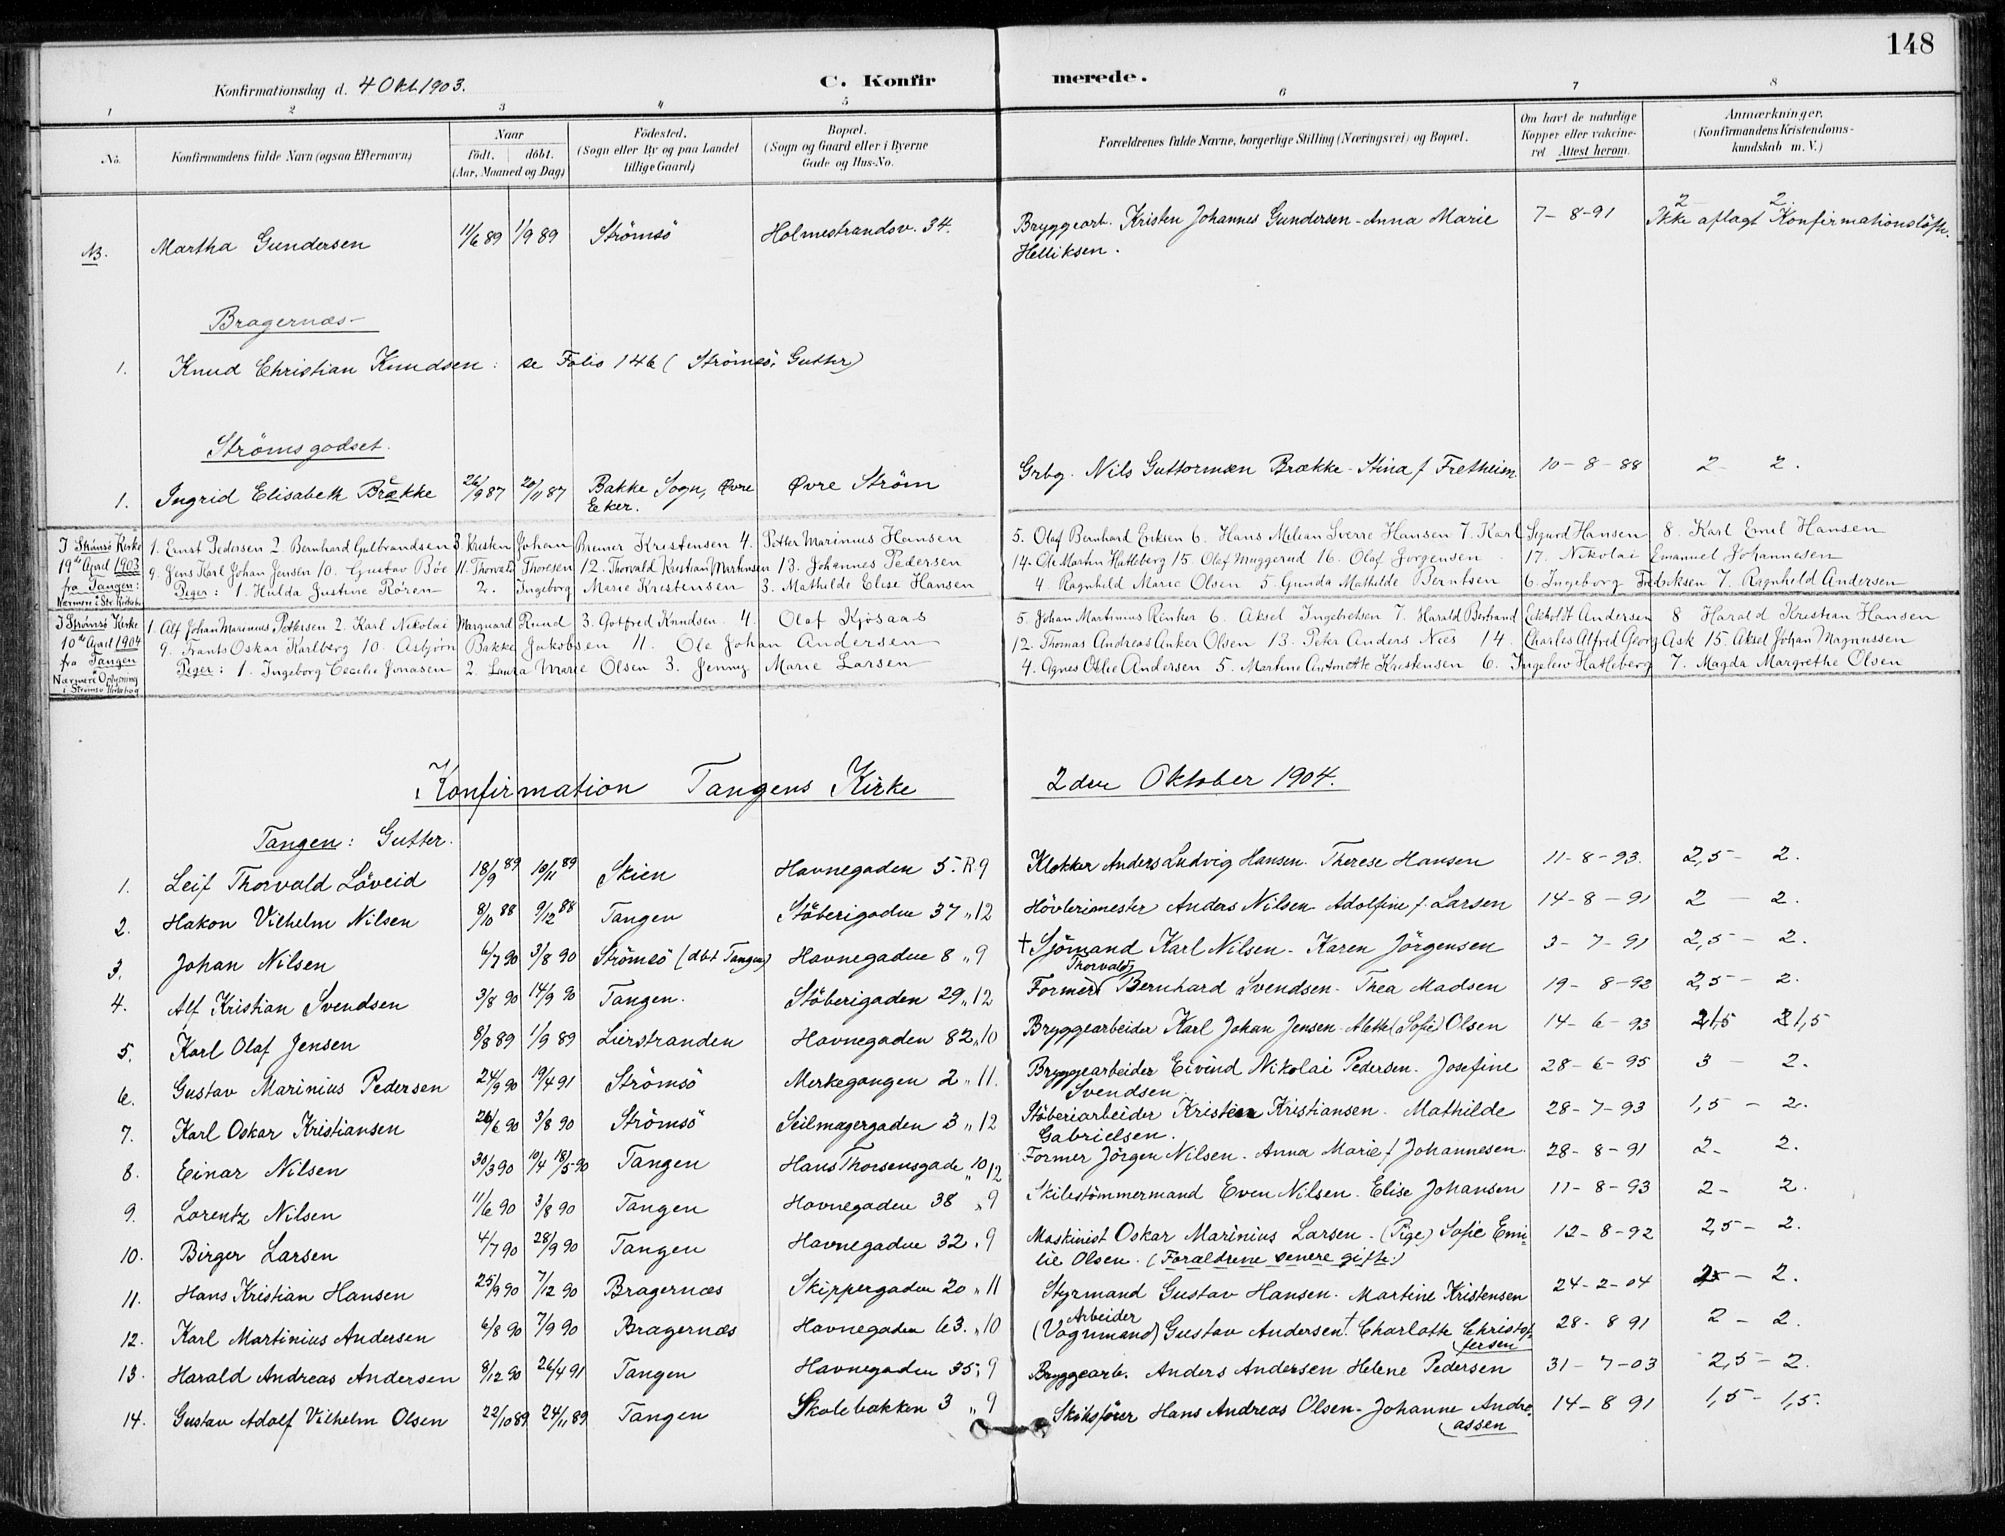 148
Konfirmationsdag d. 4 Okt. 1903. C. Konfir merede.
1 2 3 4 5 6 7 8
No. Konfirmandens fulde Navn (ogsaa Efternavn) Naar födt. döbt. (Aar, Maaned og Dag) Födested. (Sogn eller By og paa Landet tillige Gaard) Bopæl. (Sogn og Gaard eller i Byerne Gade og Hus-No. Forældrenes fulde Navne, borgerlige Stilling (Næringsvei) og Bopæl. Om havt de naturlige Kopper eller vakcineret Attest herom. Anmærkninger. (Konfirmandens Kristendomskundskab m. V.)
2 2.
NB. Martha Gundersen 11/6 89 1/9 89 Strömsö Holmestrandsv. 34. Bryggearb. Kristen Johannes Gundersen - Anna Marie 7-8-91 Ikke aflagt Konfirmationslöfte.
Helliksen.
Bragernæs-
1. Knud Christian Knudsen: se Folio 146 (Strömsö, Gutter)
Strömsgodset.
1. Ingrid Elisabeth Brække 26/9 87 20/11 87 Bakke Sogn, Øvre Eker. Øvre Ström Grbg. Nils Guttormsen Brække - Stina f. Fretheim 10-8-88 2 2.
I Strömsö Kirke 1. Ernst Pedersen 2. Bernhard Gulbrandsen 3 Kristen Johan Bremer Kristensen 4. Petter Marinius Hansen 5. Olaf Bernhard Eriksen 6. Hans Melian Sverre Hansen 7. Karl Sigurd Hansen 8. Karl Emil Hansen
19de April 1903 9. Jens Karl Johan Jensen 10. Gustav Böe 11. Thorvald Thoresen 12. Thorvald Kristian Martinsen 13. Johannes Pedersen 14. Ole Martin Hatleberg 15. Olaf Muggerud 16. Olaf Jörgensen 17. Nikolai Emanuel Johannesen
fra Tangen: Piger: 1. Hulda Justine Rören 2. Ingeborg Marie Kristensen 3. Mathilde Elise Hansen 4. Ragnhild Marie Olsen 5. Gunda Mathilde Berntsen 6. Ingeborg Fredriksen 7. Ragnhild Andersen
I Strömsö Kirke 1. Alf Johan Marinius Pettersen 2. Karl Nikolai Marquard Rund 3. Gotfred Knudsen 4. Olaf Kjösaas 5. Johan Martinius Rinker 6. Aksel Ingebretsen 7. Harald Bertrand Eckholdt Andersen 8 Harald Kristian Hansen
10de April 1904 9. Frants Oskar Karlberg 10. Asbjörn Bakke Jakobsen 11. Ole Johan Andersen 12. Thomas Andreas Anker Olsen 13. Peter Anders Nies 14. Charles Alfred Georg Ask 15. Aksel Johan Magnussen
fra Tangen Piger: 1. Ingeborg Cecilie Jonasen 2. Laura Marie Olsen 3. Jenny Marie Larsen 4. Agnes Otilie Andersen 5. Martine Antonette Kristensen 6. Ingelew Hatleberg 7. Magda Margrethe Olsen
Nærmere Oplysning i Strömsö Kirkebog
Konfirmation Tangens Kirke 2den Oktober 1904.
Tangen: Gutter.
1. Leif Thorvald Löveid 18/9 89 10/11 89 Skien Havnegaden 5. R 9 Klokker Anders Ludvig Hansen. Therese Hansen 11-8-93. 2,5 - 2.
2. Hakon Vilhelm Nilsen 8/10 88 9/12 88 Tangen Stöberigaden 37 " 12 Hövlerimester Anders Nilsen Adolfine f. Larsen 14-8-91 2 - 2.
3. Johan Nilsen 6/7 90 3/8 90 Strömsö (döbt Tangen) Havnegaden 8 " 9 † Sjömand Karl Nilsen - Karen Jörgensen 3-7-91 2,5 - 2.
4. Alf Kristian Svendsen 3/8 90 14/9 90 Tangen. Stöberigaden 29 " 12 Former Thorvald Bernhard Svendsen - Thea Madsen 19-8-92 2,5 - 2.
5. Karl Olaf Jensen 8/8 89 1/9 89 Lierstranden Havnegaden 82 " 10 Bryggearbeider Karl Johan Jensen - Alette (Sofie) Olsen 14-6-93 1,5 1,5
6. Gustav Marinius Pedersen 24/9 90 19/4 91 Strömsö Merkegangen 2 " 11. Bryggearbeider Eivind Nikolai Pedersen. Josefine 28-6-95 3 - 2.
Svendsen
7. Karl Oskar Kristiansen 26/6 90 3/8 90 Strömsö Seilmagergaden 3 " 12 Stöberiarbeider Kristian Kristiansen. Mathilde 28-7-93 1,5 - 2.
Gabrielsen.
8. Einar Nilsen 30/3 90 10/4 18/5 90 Tangen Hans Thorsensgade 10 " 12 Former Jörgen Nilsen. Anna Marie f Johannesen. 28-8-91 2- 2.
9. Lorentz Nilsen 11/6 90 3/8 90 Tangen Havnegaden 38 " 9 Skibstömmermand Even Nilsen. Elise Johansen 11-8-93 2- 2.
10. Birger Larsen 4/7 90 28/9 90 Tangen Havnegaden 32 " 9 Maskinist Oskar Marinius Larsen. (Pige) Sofie Emi- 12-8-92 2,5 - 2.
lie Olsen. (Forældrene senere gifte.)
11. Hans Kristian Hansen 25/9 90 7/12 90 Bragernæs Skippergaden 20 " 11 Styrmand Gustav Hansen. Martine Kristensen 24-2-04 - 2.
12. Karl Martinius Andersen 6/8 90 7/9 90 Bragernæs Havnegaden 63. " 10 Arbeider (Vognmand) Gustav Andersen † Charlotte Christoffersen 28-8 91 2 - 2.
13. Harald Andreas Andersen 8/12 90 26/4 91 Tangen Havnegaden 35 " 9 Bryggearb. Anders Andersen Helene Pedersen 31-7-03 2,5 - 2.
14. Gustav Adolf Vilhelm Olsen 22/10 89 24/11 89 Tangen Skolebakken 3 " 9 Skibsförer Hans Andreas Olsen - Johanne Andreassen 14-8 91 1,5 - 1,5.